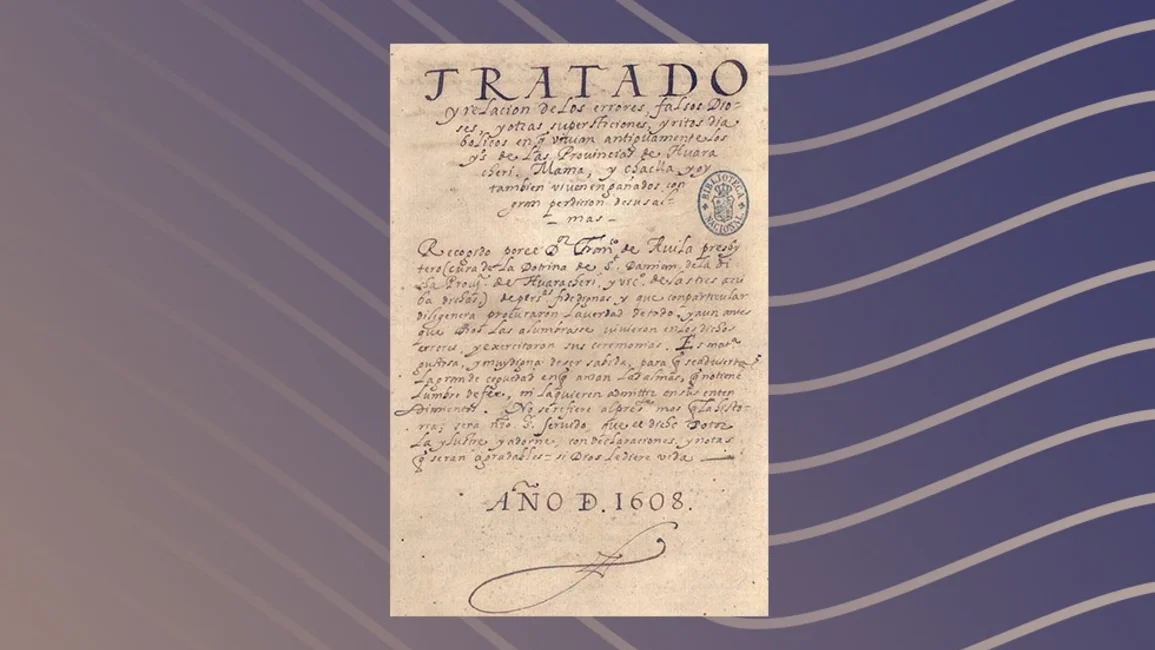 TRATADO
y relacion de los errores, falsos Dio-
ses, y otras supersticiones, y ritos dia
bolicos en q̃ vivian antiguamente los
yˢ de las Provincias de Huara
cheri, Mama, y chaclla y oy
tambien viven engañados con
gran perdicion de sus al-
- mas -
BIBLIOTECA NACIONAL
Recogido por el Dᵒʳ Franᶜᵒ de Avila presby
tero (cura de la Dotrina de Sᵗ Damian, de la di
cha Provᵃ de Huaracheri, y vicᵒ de las tres arri
ba dichas) de persᵃˢ fidedignas y que con particular
diligencia procuraron la verdad de todo, y aun antes
que Dios las alumbrasse vivieron en los dichos
errores, y exercitaron sus ceremonias. Es matᵃ
gustosa, y muy digna de ser sabida, para q̃ se advierta
la grande ceguedad en q̃ andan las almas, q̃ no tiene
lumbre de fee, ni la quieren admitir en sus enten
dimientos. No se refiere al presᵗᵉ mas q̃ la histo-
ria; sera nr̃o Sʳ servido, que el dicho Dotor
la ylustre, y adorne, con declaraciones, y notas
q̃ seran agradables = si Dios le diere vida
AÑO D. 1608.